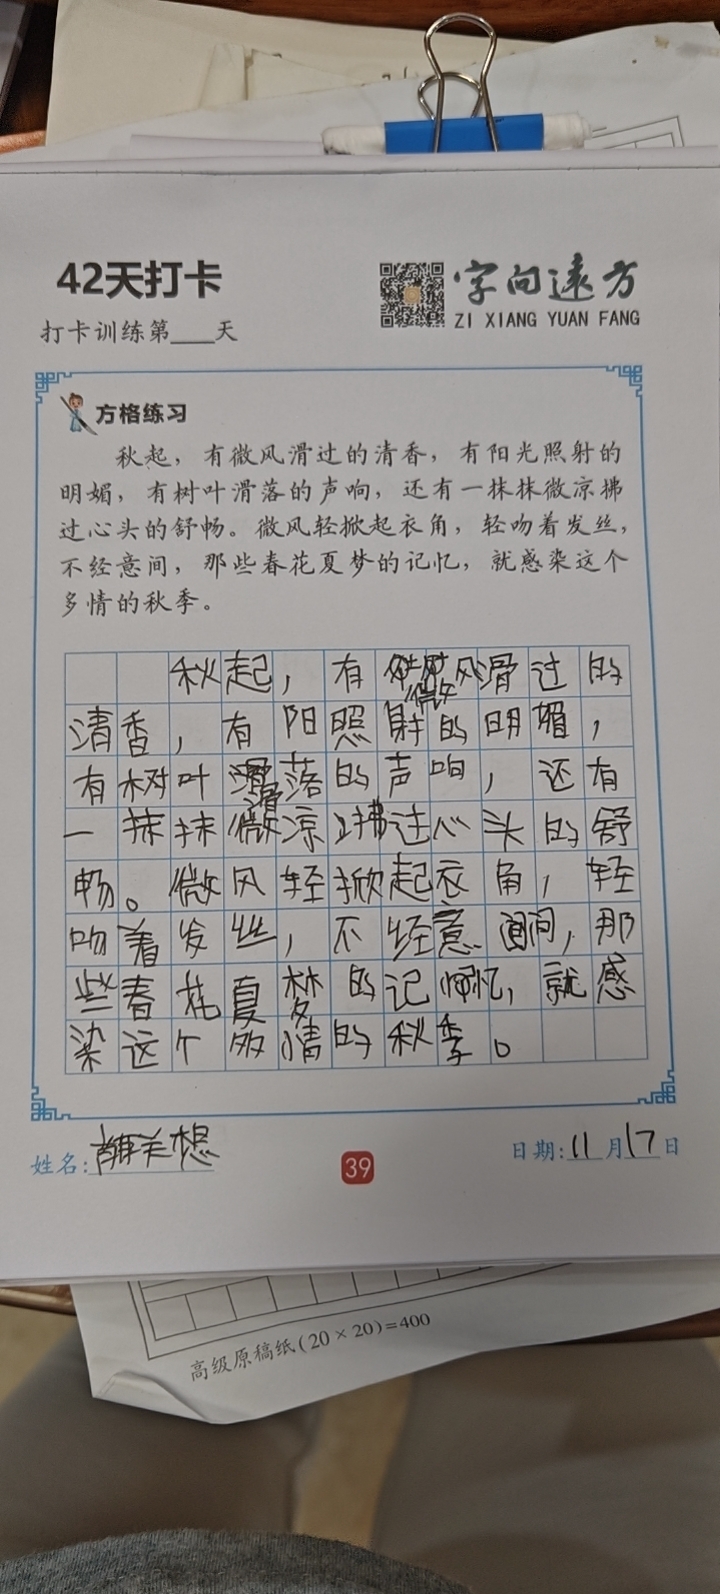 42天打卡
打卡训练第___天
字向远方
ZI XIANG YUAN FANG
方格练习
秋起，有微风滑过的清香，有阳光照射的
明媚，有树叶滑落的声响，还有一抹抹微凉拂
过心头的舒畅。微风轻掀起衣角，轻吻着发丝，
不经意间，那些春花夏梦的记忆，就感染这个
多情的秋季。
秋起，有微风滑过的
清香，有阳照射的明媚，
有树叶滑落的声响，还有
一抹抹微凉拂过心头的舒
畅。微风轻掀起衣角，轻
吻着发丝，不经意间，那
些春花夏梦的记忆，就感
染这个多情的秋季。
姓名:
39
日期:11月17日
高级原稿纸(20×20)=400